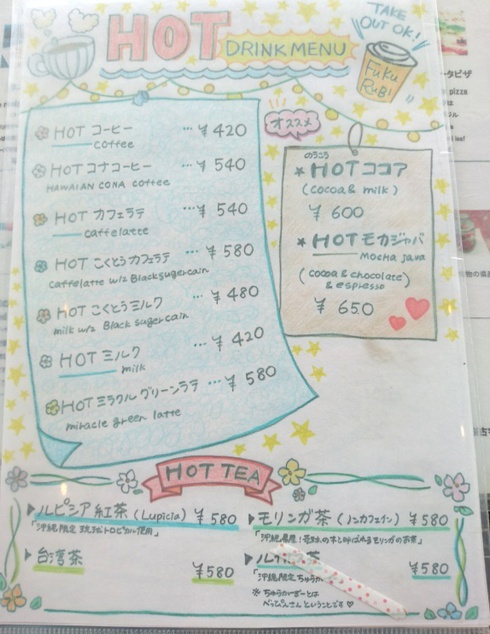 HOT
DRINK MENU
TAKE
OUT OK!
FuKu
RuBi
HOT コーヒー … ¥ 420
coffee
HOT コナコーヒー … ¥ 540
HAWAIAN CONA coffee
HOT カフェラテ … ¥ 540
caffe latte
HOT こくとうカフェラテ … ¥ 580
caffe latte w/z Black sugercain
HOT こくとうミルク … ¥ 480
milk w/z Black sugercain
HOT ミルク … ¥ 420
milk
HOT ミラクルグリーンラテ … ¥ 580
miracle green latte
オススメ
のうこう
★ HOT ココア
(cocoa & milk)
¥ 600
★ HOT モカジャバ
MOCHA JAVA
(cocoa & chocolate)
& espresso
¥ 650
HOT TEA
▶ ルピシア 紅茶 (Lupicia) ¥ 580
「沖縄限定 琉球トロピカル使用」
▶ 台湾茶
¥580
▶ モリンガ茶 (ノンカフェイン) ¥ 580
茶
¥580
「沖縄限定
※ ちゅらかーぎーとは
べっぴんさん ということです
pizza